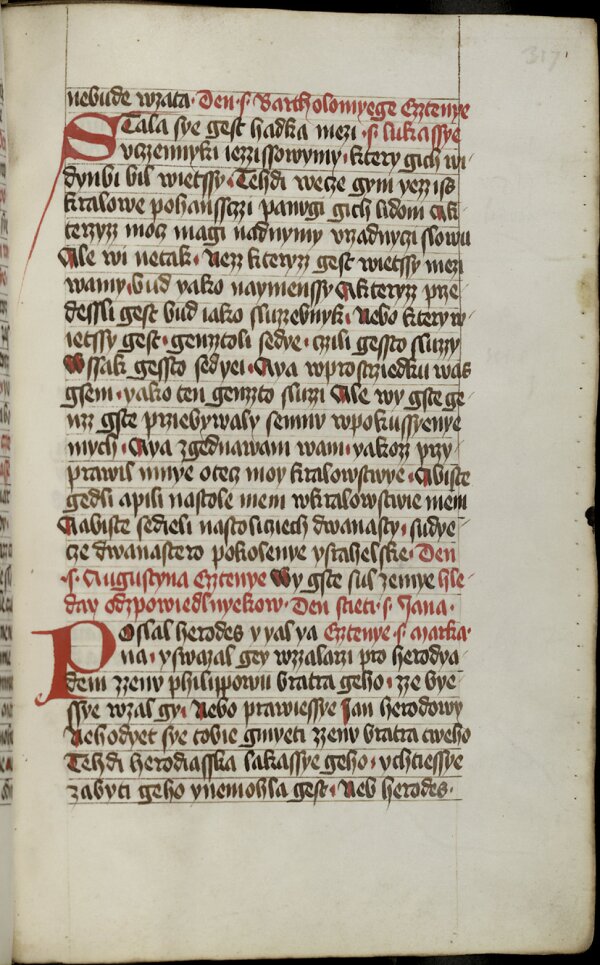 317
nebude wzata · Den · s · Bartholomyege Cztenye
Stala sye gest hadka mezi · s · lukassye
vczennyki iezzissowymy · ktery gich wi
dynbi bil wietssy · Tehdi wecze gym yezziss
kralowe pohanssczi panugi gich lidom Ak
terzyz mocz magi nadnymy vradnyczi slowu
Ale wi netak · Nezz kteryzz gest wietssy mezi
wamy · bud yako naymenssy Akteryzz prze
dessli gest bud iako sluzebnyk · Nebo ktery w
ietssy gest · genzztoli sedye · czili gessto sluzzy
Wssak gessto sedyei · A ya wprostrziedku was
gsem · yako ten genzzto sluzzi Ale wy gste ge
nzz gste prziebywaly semnu wpokussyenye
mych · A ya zgednawam wam · yakozz przy
prawil mnye otecz moy kralowstwye · Abiste
gedli apili nastole mem wkralowstwie mem
A abiste sedieli nastoliciech dwanasty · sudye
cze dwanastero pokolenye ysrahelske · Den
· s · Augustyna Cztenye Wy gste sul zemye hle
day odzpowiedlnyekow · Den stieti · s · Jana ·
Poslal herodes y yal ya Cztenye · s · marka ·
na · yswazal gey wzzalarzi pro herodya
dem zzenu philippowu bratra geho · zze bye
ssye wzal gy · Nebo prawiessye Jan herodowy
Nehodyet sye tobie gmyeti zzenu bratra tweho
Tehdi herodiasska lakassye geho · ychtiessye
zabyti geho ynemohla gest · Neb herodes ·